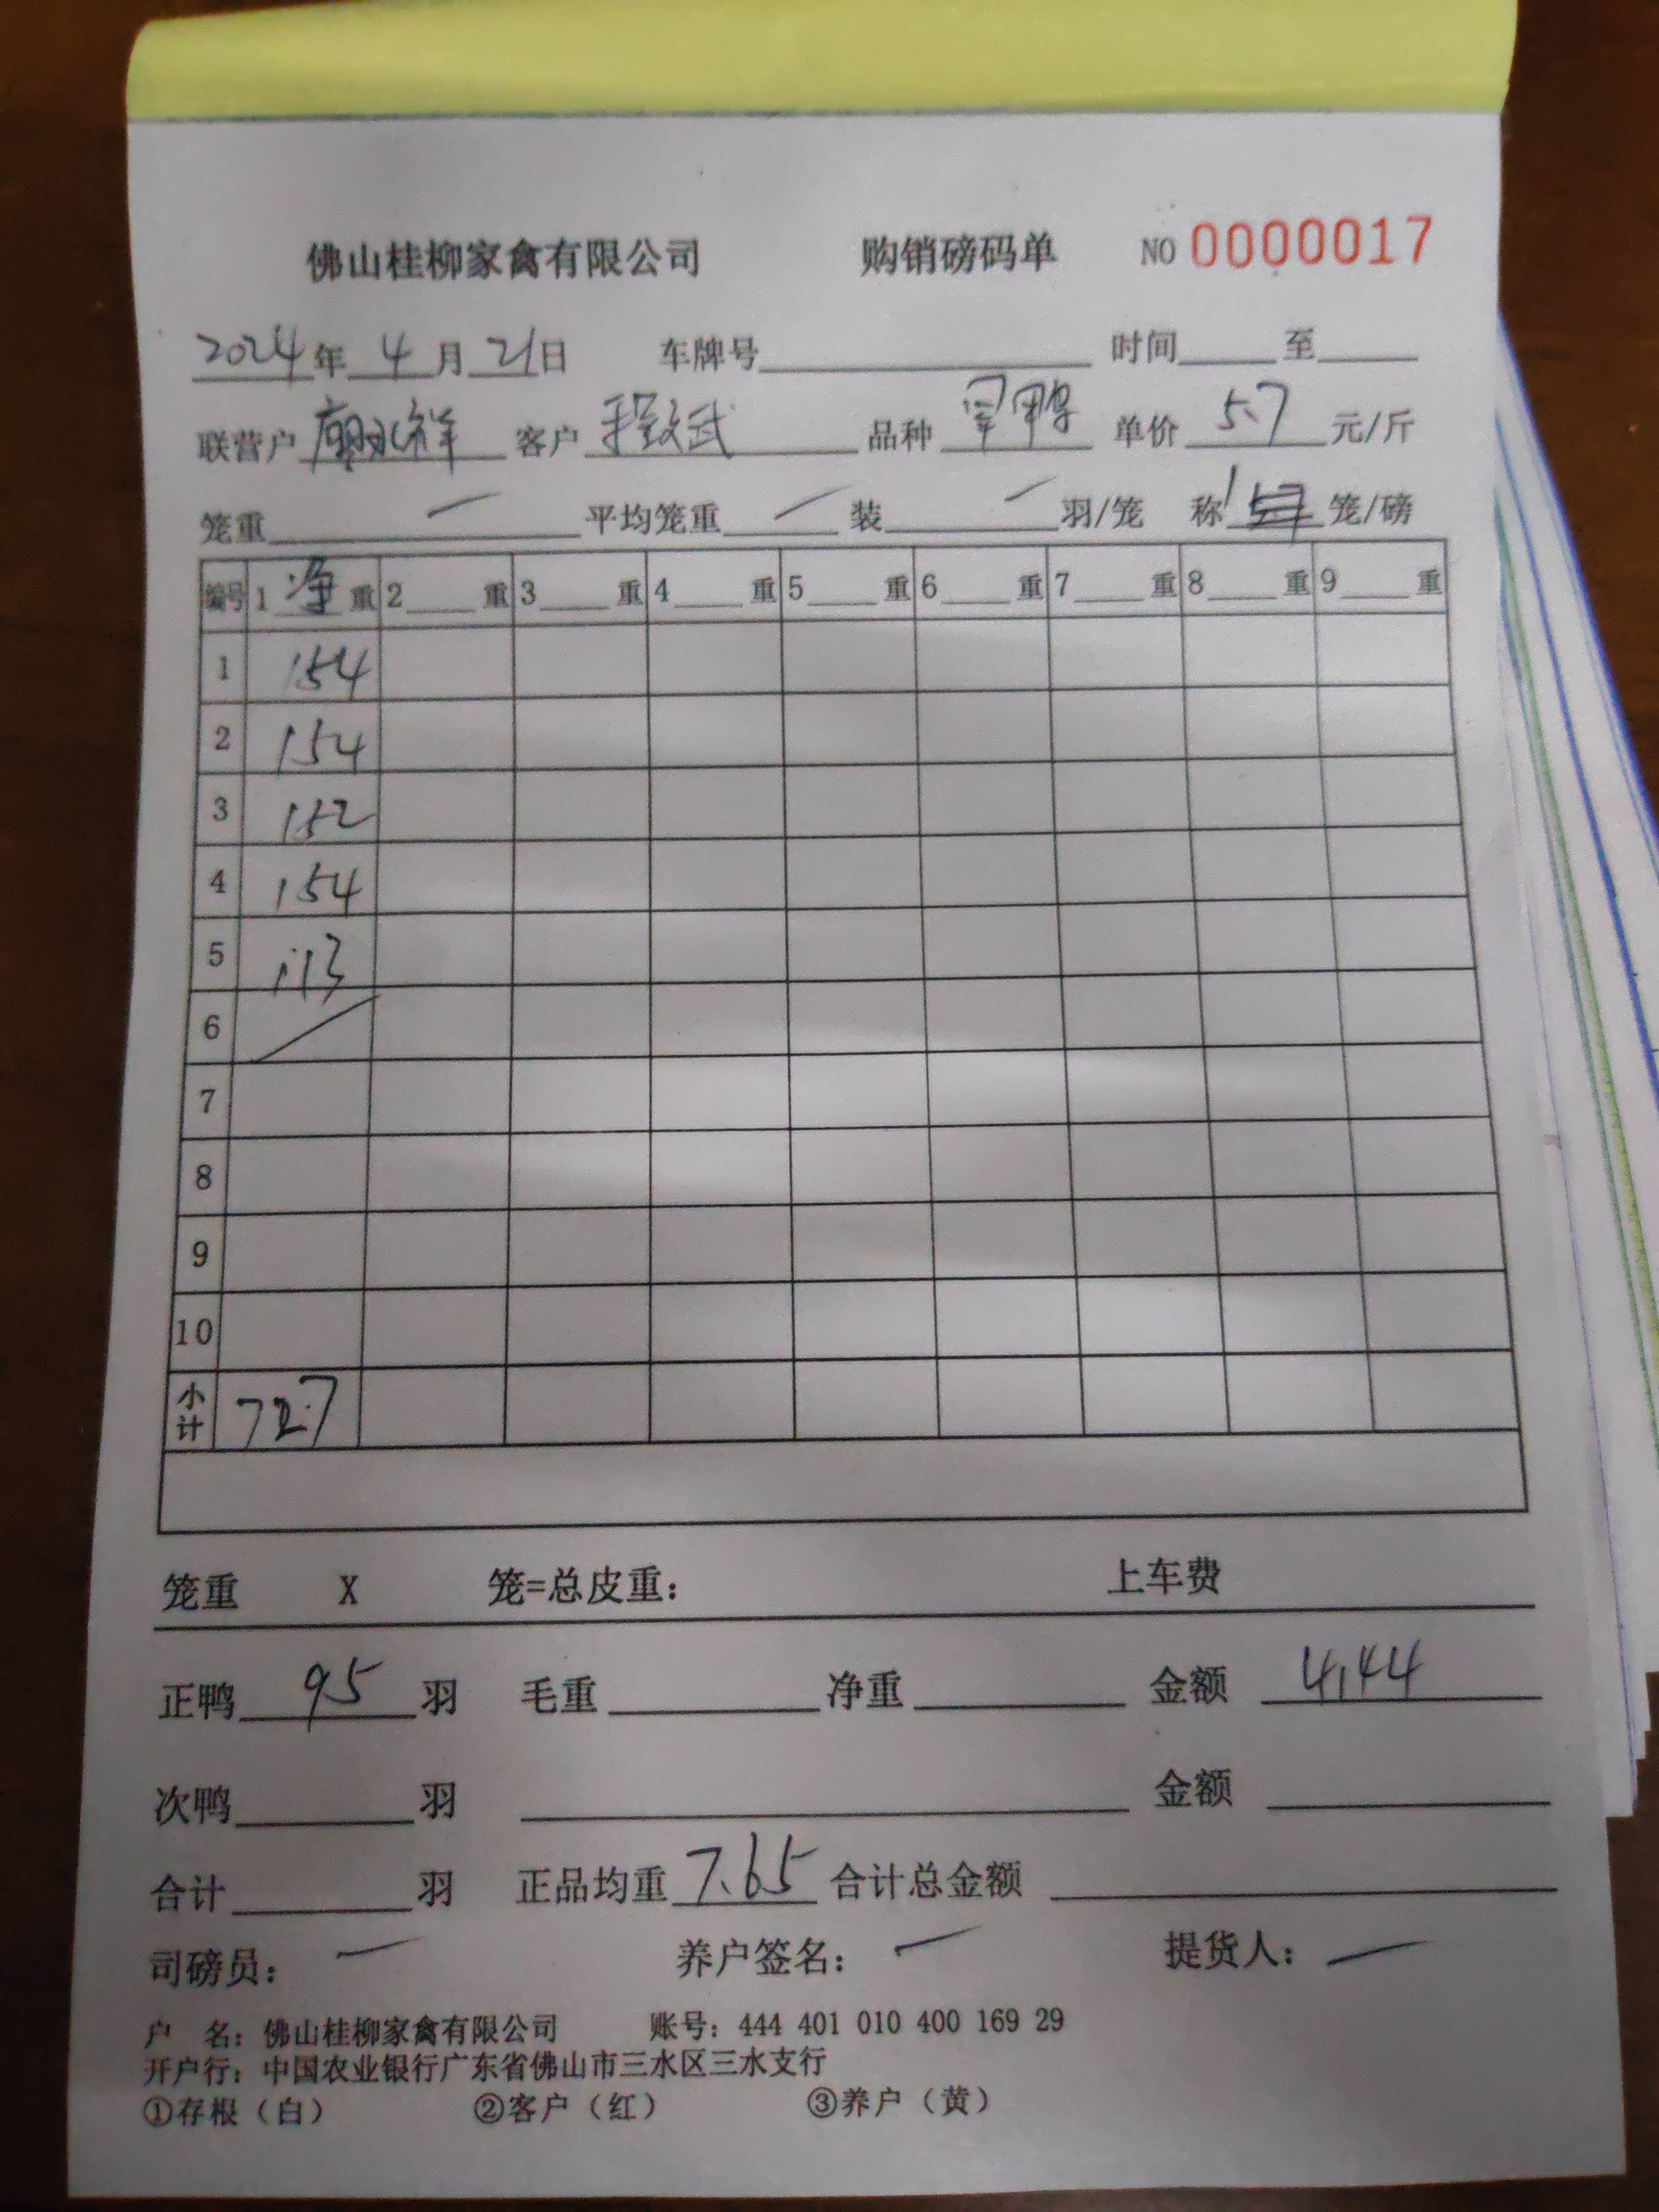 佛山桂柳家禽有限公司 购销磅码单 NO 0000017
2024年 4月 21日 车牌号 时间 至
联营户 廖永祥 客户 程文武 品种 鸭 单价 5.7 元/斤
笼重 — 平均笼重 — 装 — 羽/笼 称 笼/磅
编号 1 净 重 2 重 3 重 4 重 5 重 6 重 7 重 8 重 9 重
1 154
2 154
3 152
4 154
5 113
6
7
8
9
10
小计 727
笼重 X 笼=总皮重: 上车费
正鸭 95 羽 毛重 净重 金额 4144
次鸭 羽 金额
合计 羽 正品均重 7.65 合计总金额
司磅员: — 养户签名: — 提货人: —
户 名: 佛山桂柳家禽有限公司 账号: 444 401 010 400 169 29
开户行: 中国农业银行广东省佛山市三水区三水支行
①存根(白) ②客户(红) ③养户(黄)